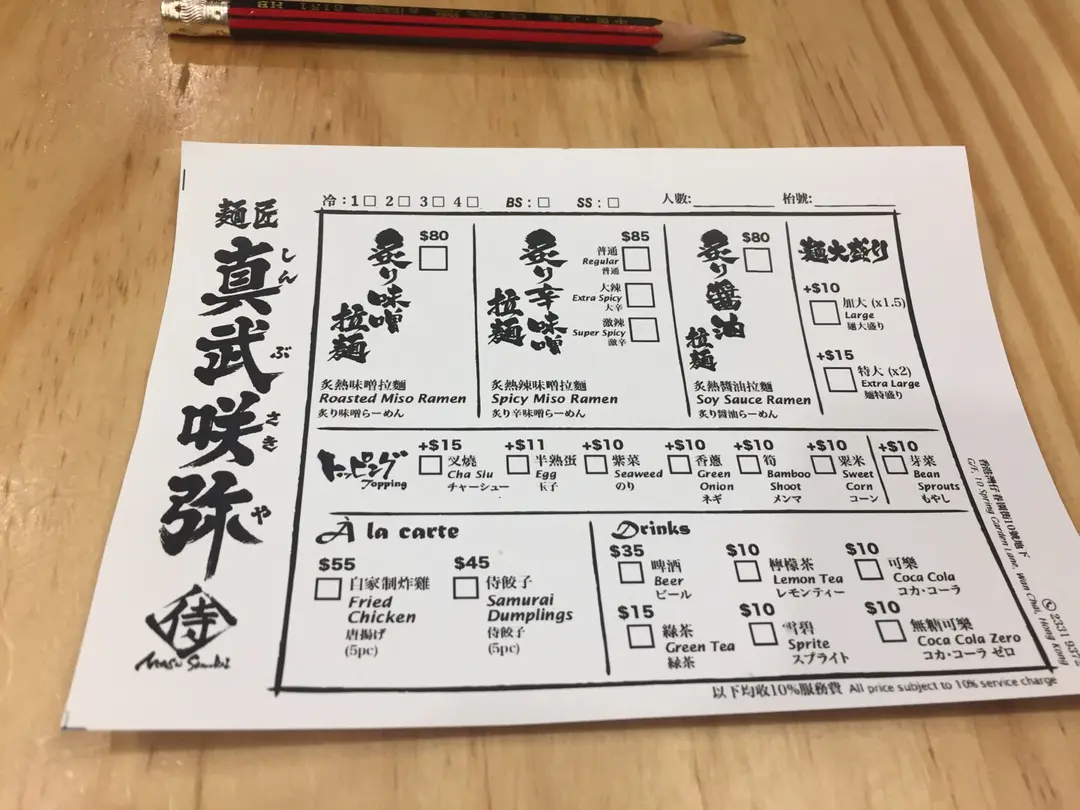 麵匠
真武咲弥
しん
ぶ
さき
や
侍
冷:1□ 2□ 3□ 4□ BS:□ SS:□ 人數: 枱號:
$80
炙り味噌
拉麺
炙熱味噌拉麵
Roasted Miso Ramen
炙り味噌らーめん
$85
炙り辛味噌
拉麺
普通
Regular
普通
大辣
Extra Spicy
大辛
激辣
Super Spicy
激辛
炙熱辣味噌拉麵
Spicy Miso Ramen
炙り辛味噌らーめん
$80
炙り醤油
拉麺
炙熱醬油拉麵
Soy Sauce Ramen
炙り醤油らーめん
麺大盛り
+$10
加大 (x1.5)
Large
麺大盛り
+$15
特大 (x2)
Extra Large
麺特盛り
トッピング
Topping
+$15
叉燒
Cha Siu
チャーシュー
+$11
半熟蛋
Egg
玉子
+$10
紫菜
Seaweed
のり
+$10
香蔥
Green
Onion
ネギ
+$10
筍
Bamboo
Shoot
メンマ
+$10
粟米
Sweet
Corn
コーン
+$10
芽菜
Bean
Sprouts
もやし
À la carte
$55
自家制炸雞
Fried
Chicken
唐揚げ
(5pc)
$45
侍餃子
Samurai
Dumplings
侍餃子
(5pc)
Drinks
$35
啤酒
Beer
ビール
$10
檸檬茶
Lemon Tea
レモンティー
$10
可樂
Coca Cola
コカ・コーラ
$15
綠茶
Green Tea
緑茶
$10
雪碧
Sprite
スプライト
$10
無糖可樂
Coca Cola Zero
コカ・コーラ ゼロ
以下均收10%服務費 All price subject to 10% service charge
G/F, 10 Spring Garden Lane, Wan Chai, Hong Kong